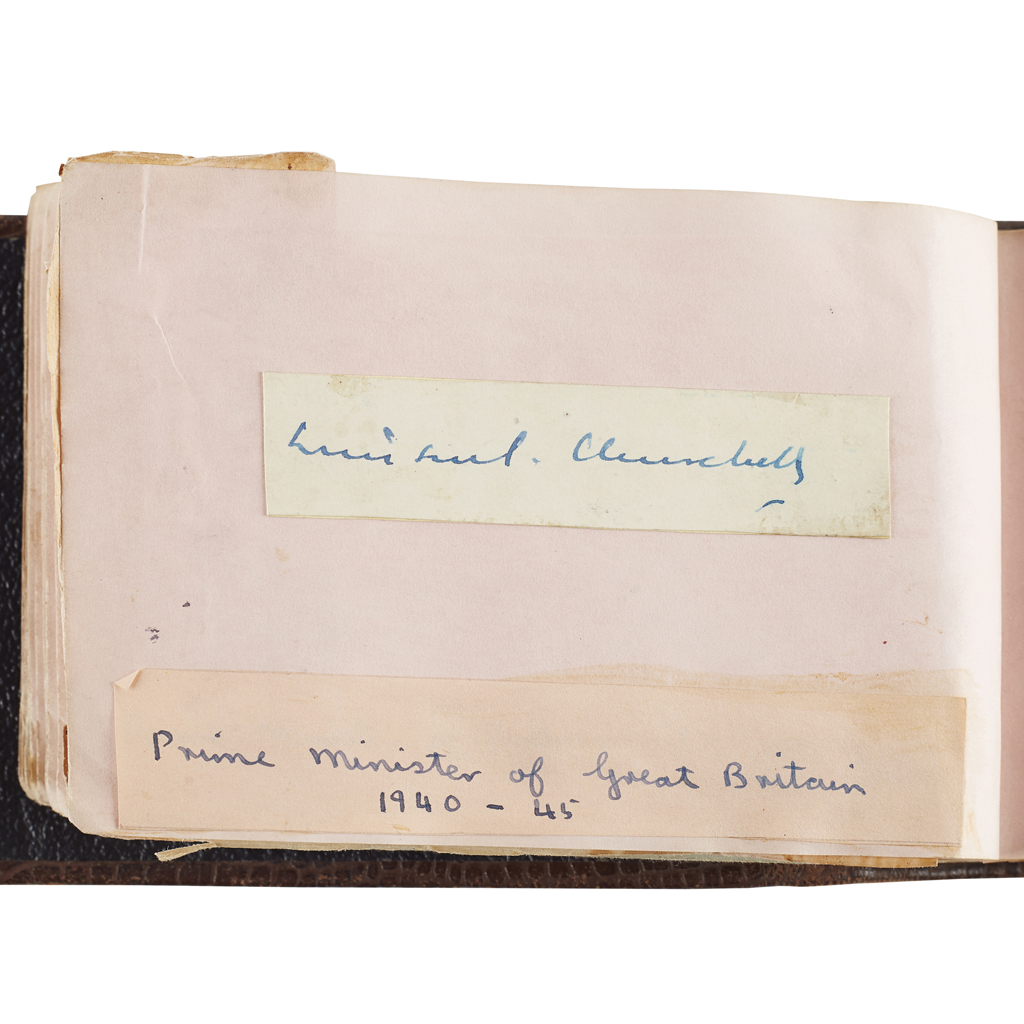 Winston S. Churchill
Prime Minister of Great Britain
1940 - 45